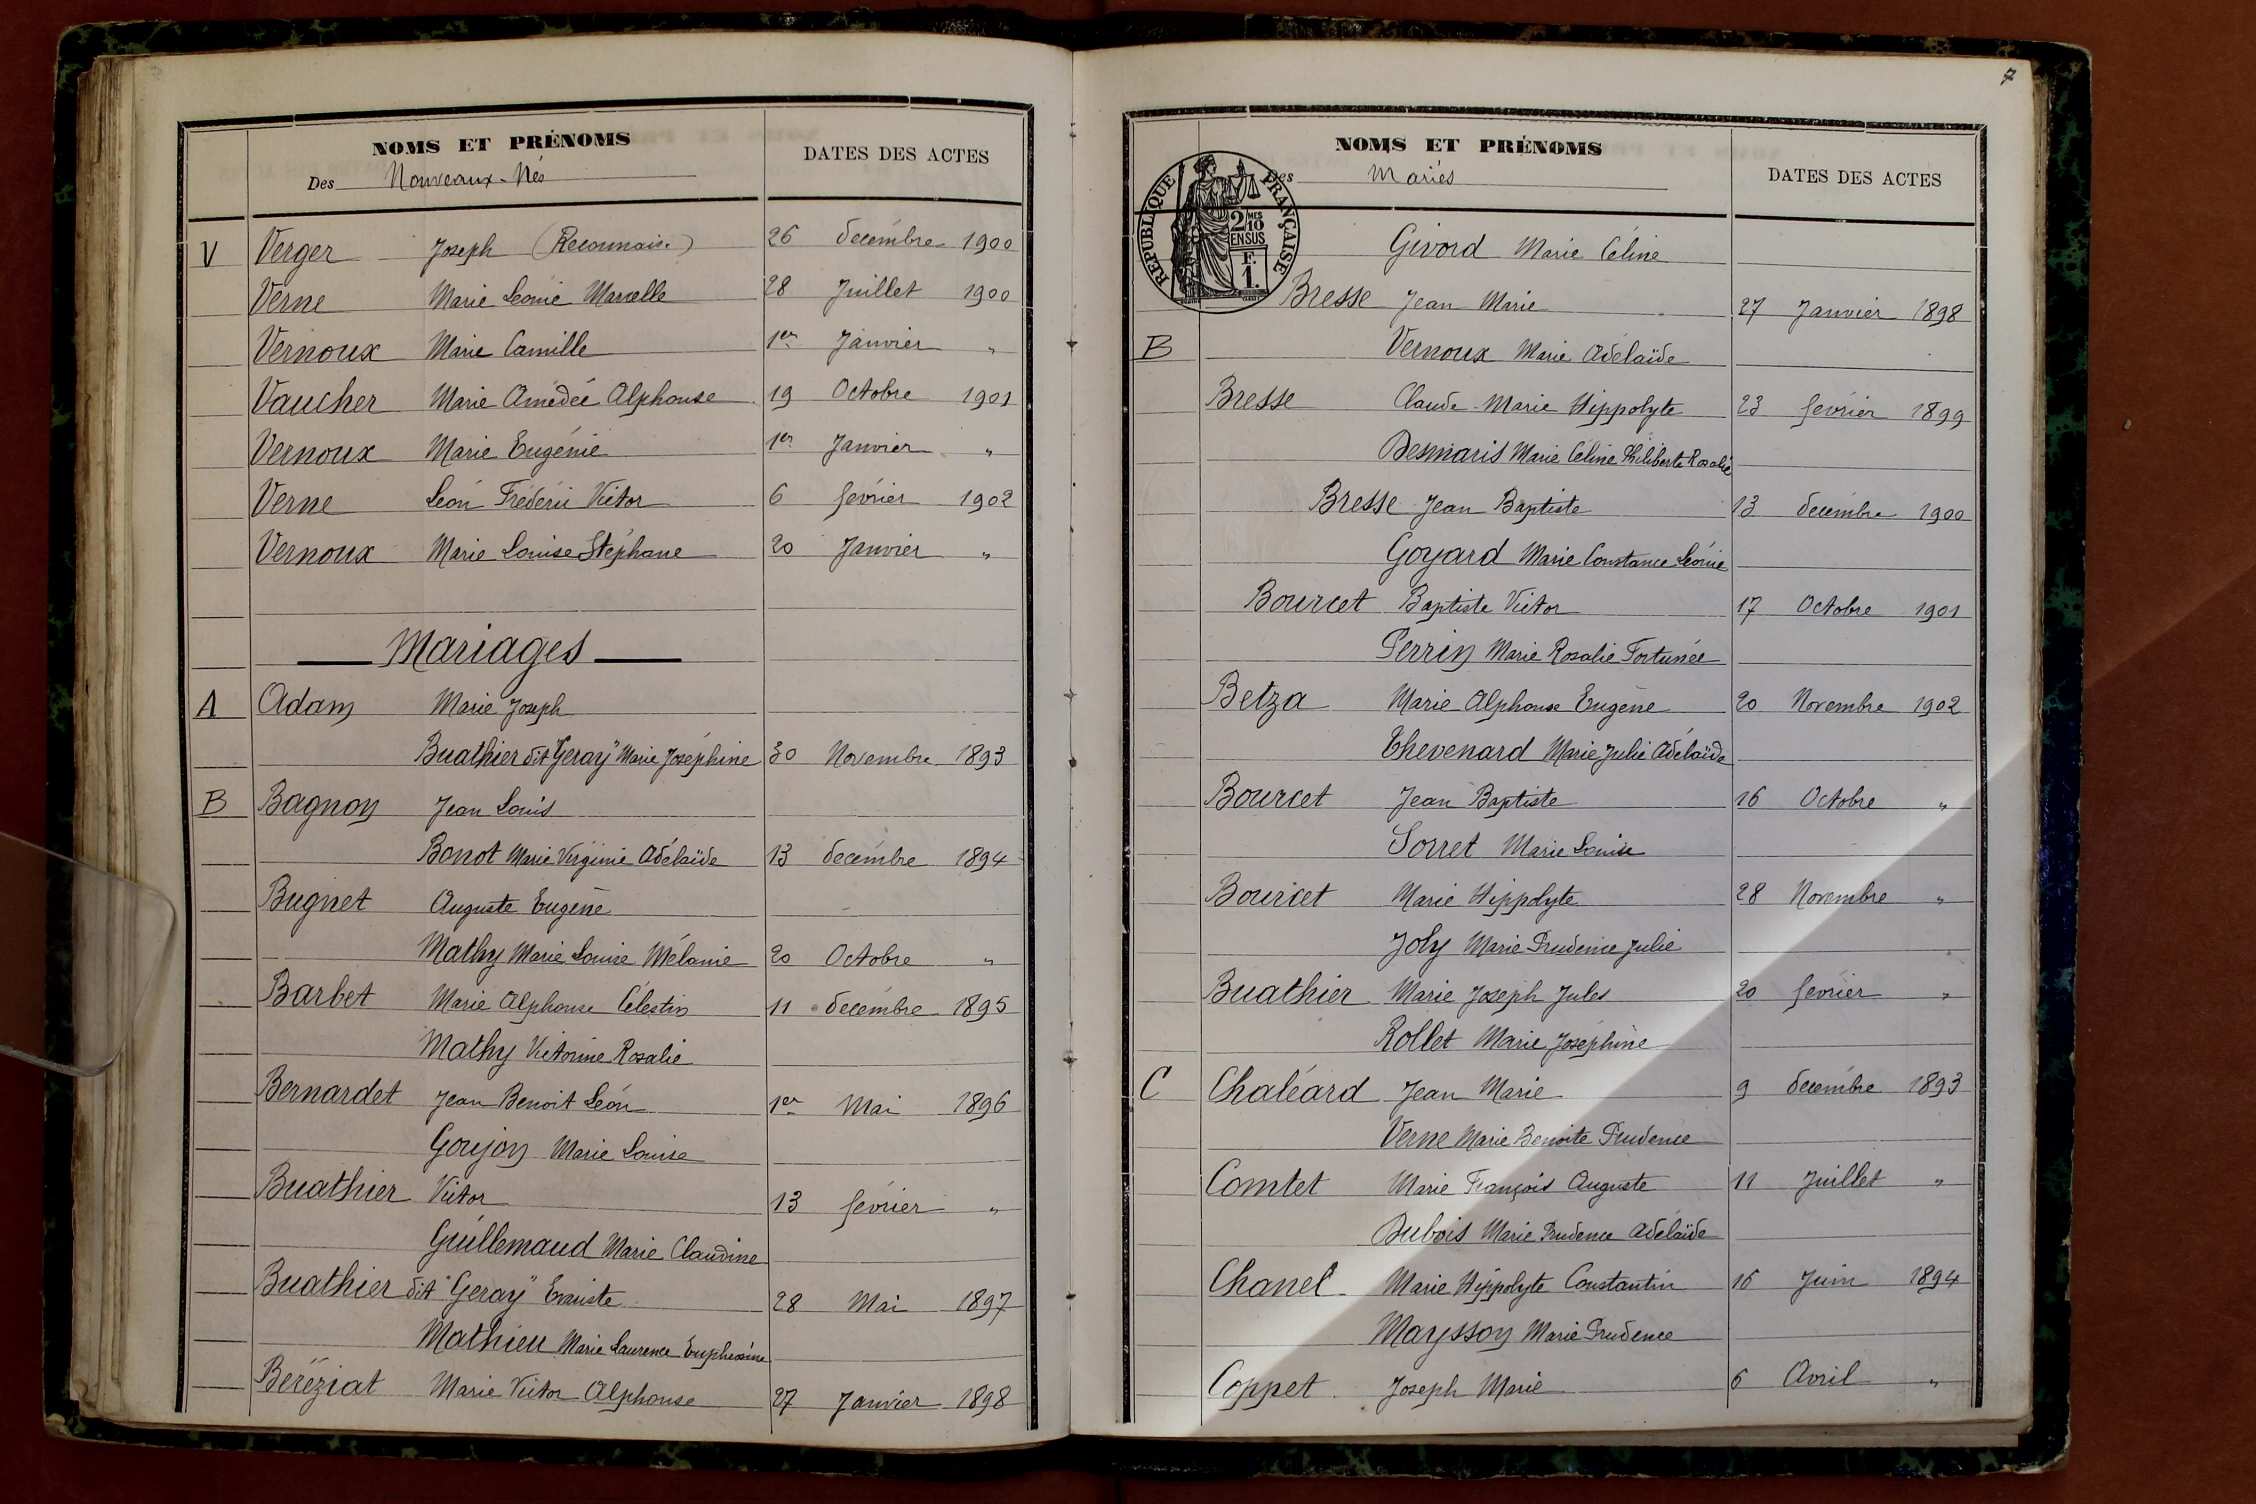 NOMS ET PRÉNOMS
Des Nouveaux-Nés
DATES DES ACTES
V Verger Joseph (Reconnais.) 26 décembre 1900
Verne Marie Léonie Marcelle 28 Juillet 1900
Vernoux Marie Camille 1er Janvier "
Vaucher Marie Amédée Alphonse 19 Octobre 1901
Vernoux Marie Eugénie 1er Janvier "
Verne Léon Frédéric Victor 6 février 1902
Vernoux Marie Louise Stéphane 20 Janvier "
Mariages
A Adam Marie Joseph
Buathier dit "Geray" Marie Joséphine 30 Novembre 1893
B Bagnon Jean Louis
Bonot Marie Virginie Adélaïde 13 décembre 1894
Bugnet Auguste Eugène
Mathy Marie Louise Mélanie 20 Octobre "
Barbet Marie Alphonse Célestin 11 décembre 1895
Mathy Victorine Rosalie
Bernardet Jean Benoit Léon 1er Mai 1896
Goujon Marie Louise
Buathier Victor 13 février "
Guillemaud Marie Claudine
Buathier dit "Geray" Evariste 28 Mai 1897
Mathieu Marie Laurence Euphrosine
Béréziat Marie Victor Alphonse 27 Janvier 1898
7
NOMS ET PRÉNOMS
Des Mariés
DATES DES ACTES
RÉPUBLIQUE FRANÇAISE
2/10 MES
EN SUS
F.
1.
Givord Marie Céline
Bresse Jean Marie 27 Janvier 1898
B Vernoux Marie Adélaïde
Bresse Claude Marie Hippolyte 23 février 1899
Desmaris Marie Céline Philiberte Rosalie
Bresse Jean Baptiste 13 décembre 1900
Goyard Marie Constance Léonie
Bourcet Baptiste Victor 17 Octobre 1901
Perrin Marie Rosalie Fortunée
Betza Marie Alphonse Eugène 20 Novembre 1902
Thevenard Marie Julie Adélaïde
Bourcet Jean Baptiste 16 Octobre "
Sorret Marie Louise
Bourcet Marie Hippolyte 28 Novembre "
Joly Marie Prudence Julie
Buathier Marie Joseph Jules 20 février "
Rollet Marie Joséphine
C Chaléard Jean Marie 9 décembre 1893
Verne Marie Benoite Prudence
Comtet Marie François Auguste 11 Juillet "
Dubois Marie Prudence Adélaïde
Chanel Marie Hippolyte Constantin 16 Juin 1894
Mayssoy Marie Prudence
Coppet Joseph Marie 6 Avril "